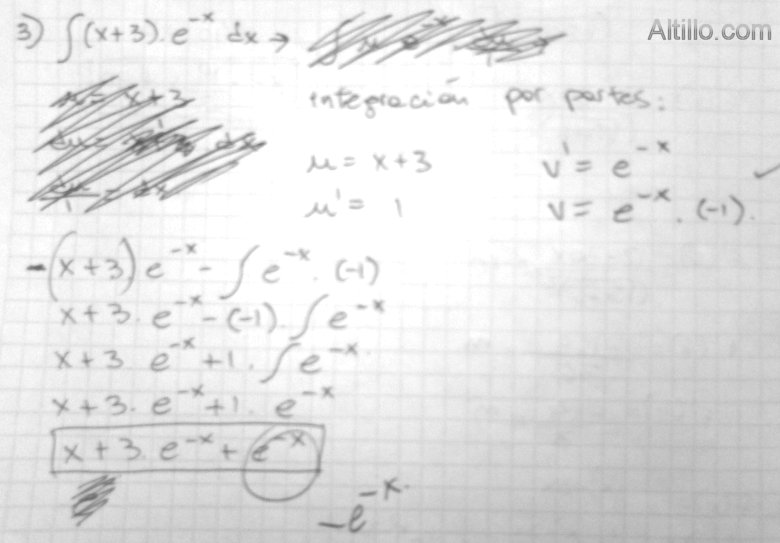 Altillo.com
3) ∫(x+3). e^-x dx →
integración por partes:
u = x+3 v' = e^-x ✓
u' = 1 v = e^-x . (-1).
-(x+3) e^-x - ∫ e^-x . (-1)
x+3. e^-x - (-1). ∫ e^-x
x+3. e^-x +1. ∫ e^-x
x+3. e^-x +1. e^-x
x+3. e^-x + e^-x
-e^-x.